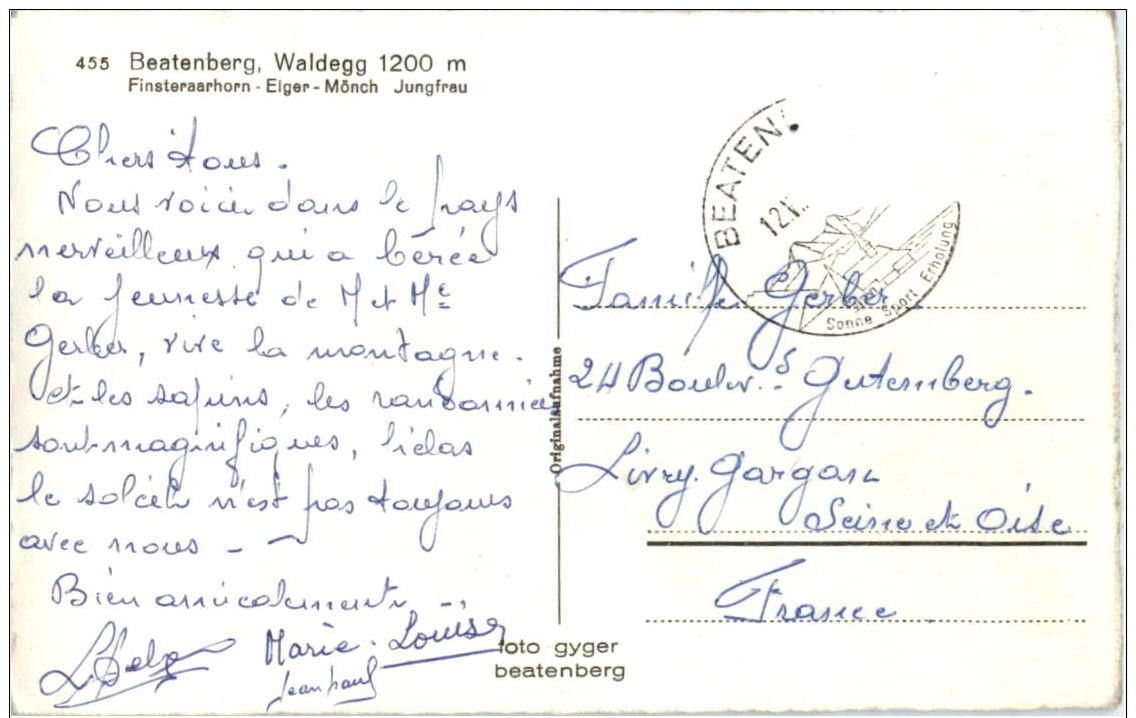 455 Beatenberg, Waldegg 1200 m
Finsteraarhorn - Eiger - Mönch Jungfrau
Chers tous.
Nous voici dans le pays
merveilleux qui a bercée
la jeunesse de M et Me
Gerber, vive la montagne.
et les sapins, les randonnées
sont magnifiques, hélas
le soleil n'est pas toujours
avec nous -
Bien amicalement
Marie-Louise
Jean paul
Originalaufnahme
foto gyger
beatenberg
BEATEN
12.V
Sonne Sport Erholung
Famille Gerber
24 Boulv.s Gutemberg.
Livry. Gargan
Seine et Oise
France